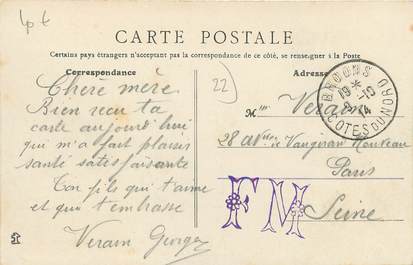 4p t
CARTE POSTALE
Certains pays étrangers n'acceptant pas la correspondance de ce côté, se renseigner à la Poste
Correspondance
Adresse
22
BROONS
19 * 9-10 14
CÔTES DU NORD
Chère mère
Bien recu ta
carte aujourd'hui
qui m'a fait plaisir
santé satisfaisante
Ton fils qui t'aime
et qui t'embrasse
Verain Georges
M me Verain
28
Vaugirau
Paris
Seine
FM